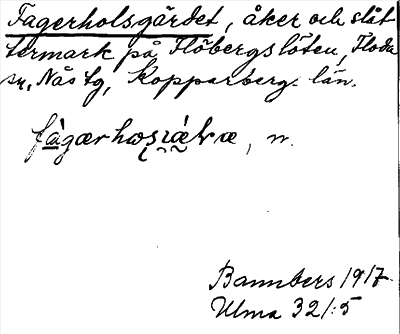 Fagerholsgärdet, åker och slåt
termark på Flöbergslöten, Floda
sn, Nås tg, Kopparberg. län.
fàgærhωsıǽṭræ, n.
Bannbers 1917.
Ulma 321:5